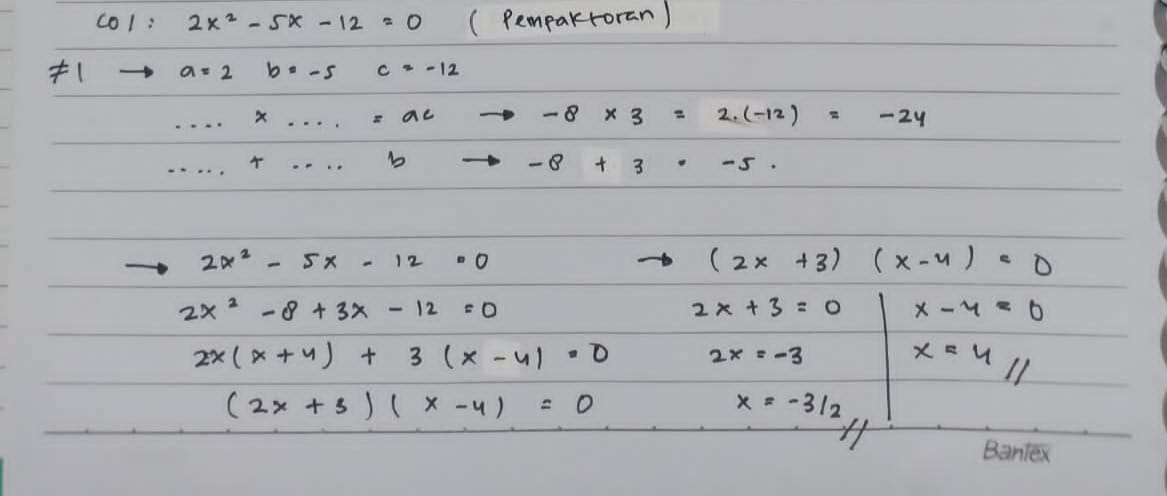 CO1 : 2x² - 5x - 12 = 0 (Pempaktoran)
≠1 → a = 2 b = -5 c = -12
.... x .... = ac → -8 x 3 = 2.(-12) = -24
..... + .... b → -8 + 3 = -5.
→ 2x² - 5x - 12 = 0
2x² - 8 + 3x - 12 = 0
2x(x+4) + 3 (x-4) = 0
(2x + 3)(x - 4) = 0
→ (2x + 3) (x-4) = 0
2x + 3 = 0
2x = -3
x = -3/2 //
x - 4 = 0
x = 4 //
Bantex